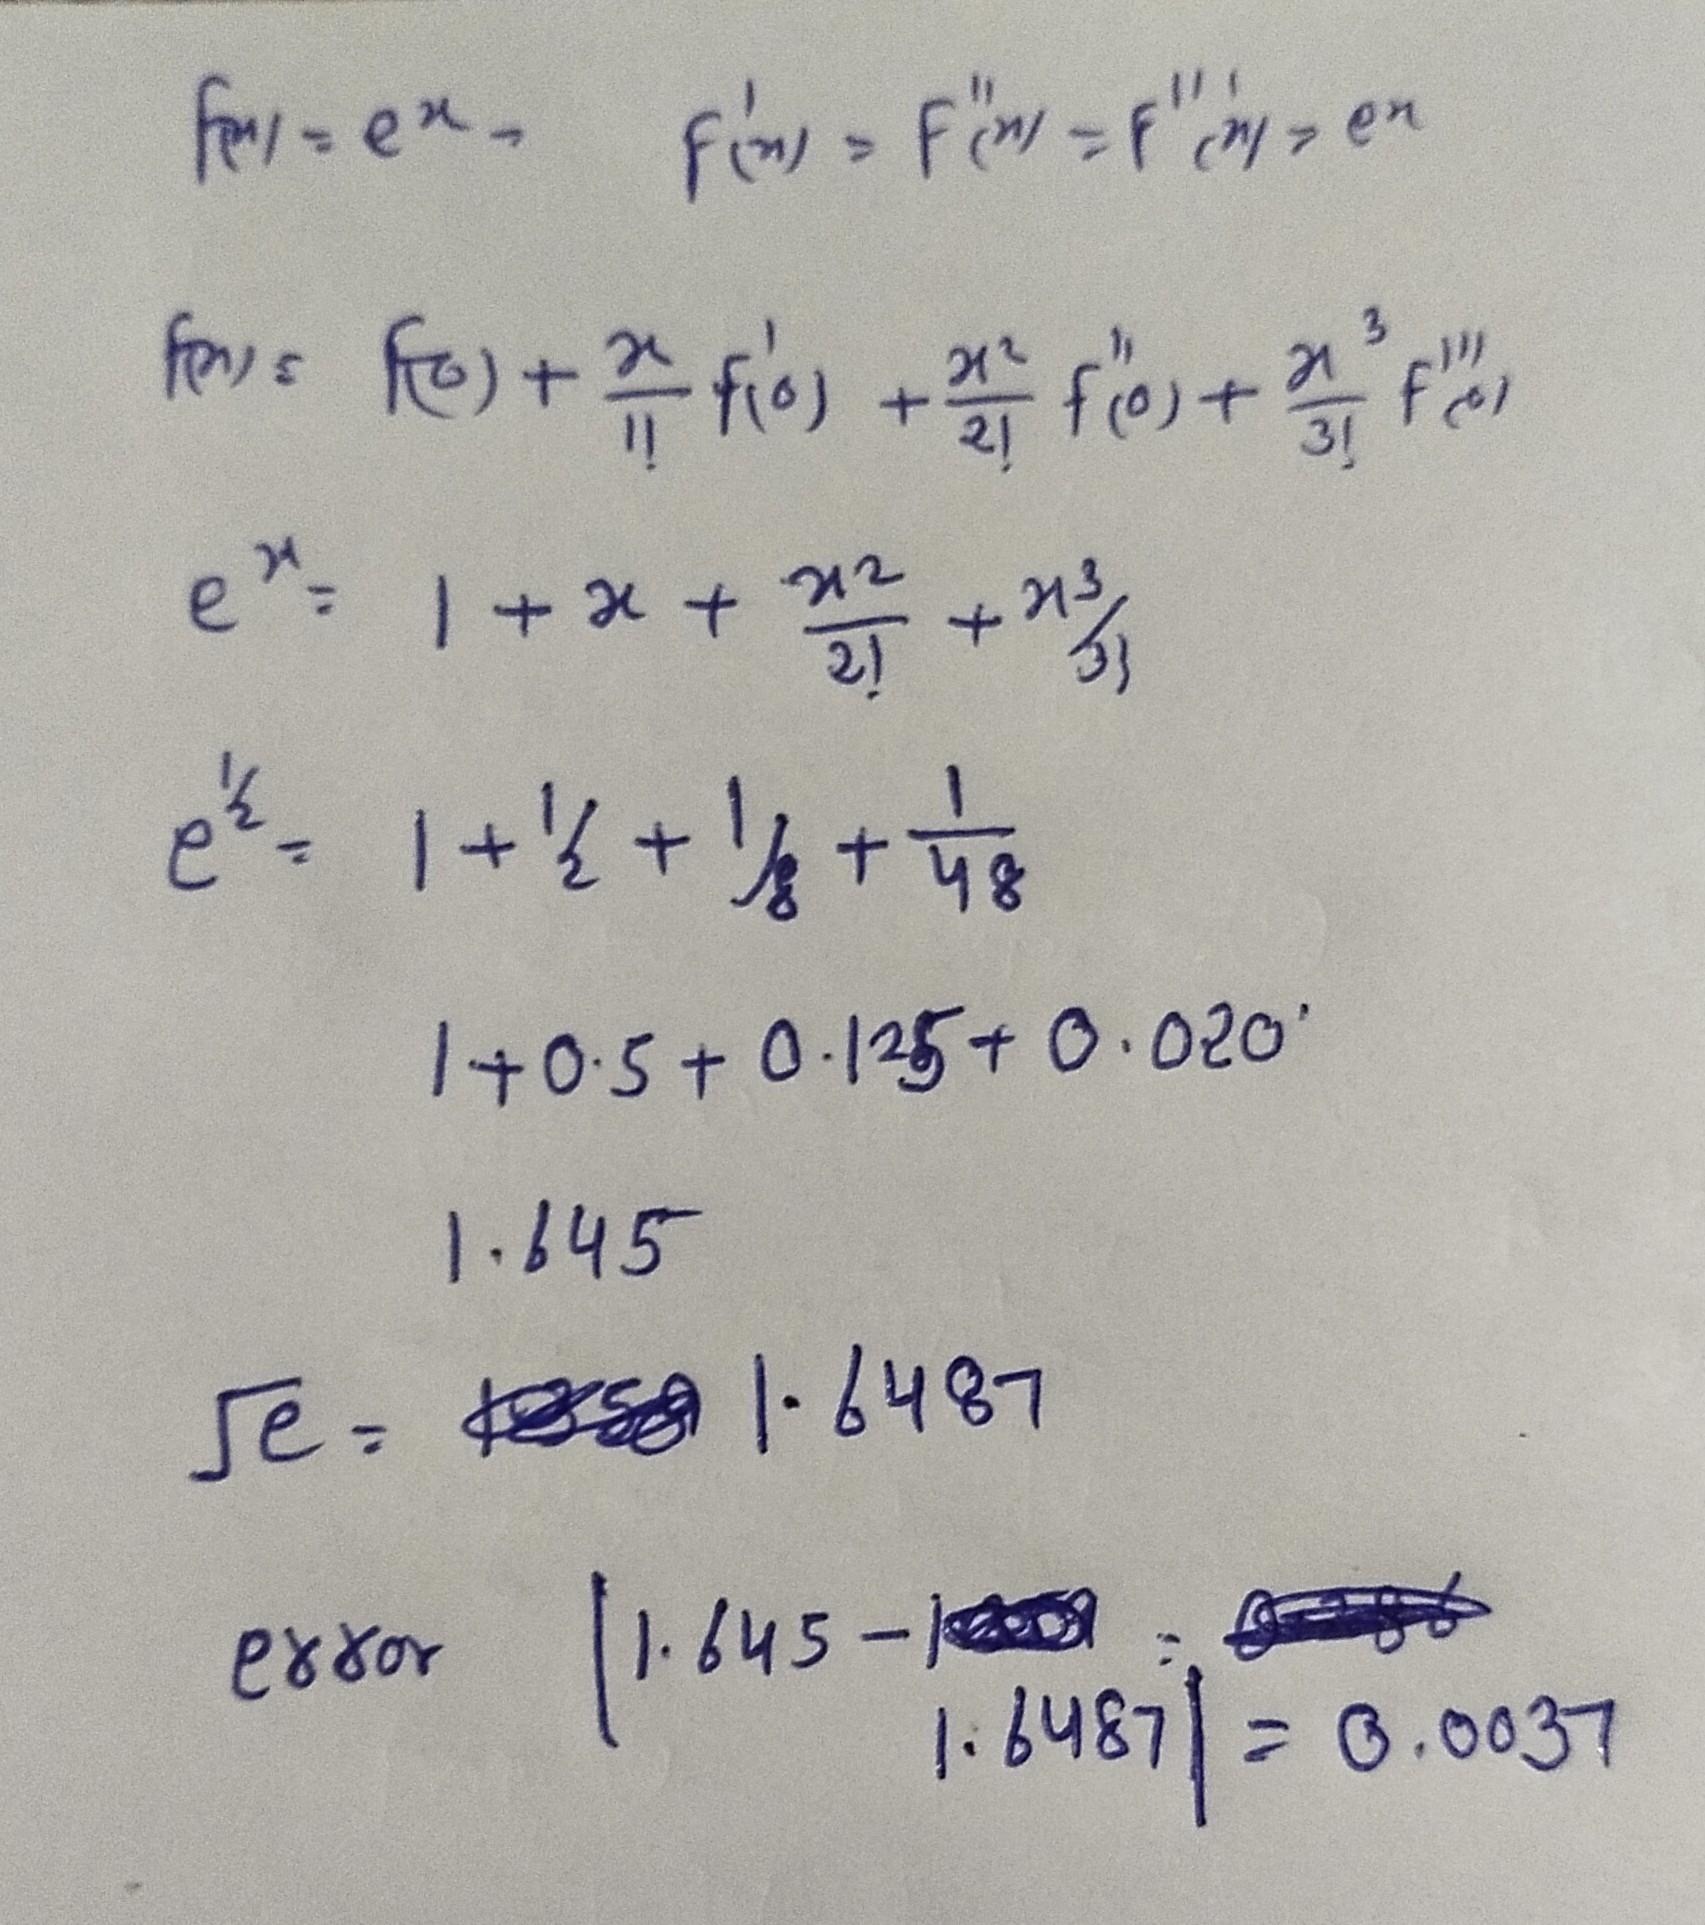 f(x) = eˣ, f'(x) = f''(x) = f'''(x) = eˣ
f(x) = f(0) + x/1! f'(0) + x²/2! f''(0) + x³/3! f'''(0)
eˣ = 1 + x + x²/2! + x³/3!
e^½ = 1 + 1/2 + 1/8 + 1/48
1 + 0.5 + 0.125 + 0.020
1.645
√e = 1.6487
error |1.645 - =
1.6487| = 0.0037